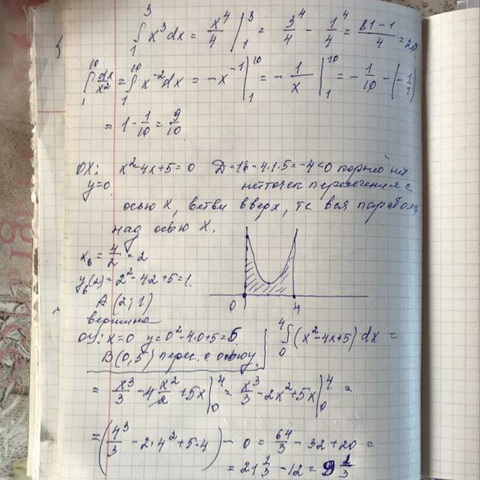 3∫1 x³dx = x⁴/4 |³₁ = 3⁴/4 - 1⁴/4 = (81-1)/4 = 20
10∫1 dx/x² = 10∫1 x⁻²dx = -x⁻¹ |¹⁰₁ = -1/x |¹⁰₁ = -1/10 - (-1/1)
= 1 - 1/10 = 9/10
OX: x²-4x+5=0 D=16-4·1·5=-4<0 корней нет
y=0 нет точек пересечения с
осью X, ветви вверх, т.е вся парабола
над осью X.
x_в = 4/2 = 2
y_в(2)=2²-4·2+5=1.
A(2;1)
вершина
0 4
OY: x=0 y=0²-4·0+5=5
4∫0 (x²-4x+5)dx =
B(0,5) перес. с осью y
= x³/3 - 4x²/2 + 5x |⁴₀ = x³/3 - 2x² + 5x |⁴₀ =
= (4³/3 - 2·4² + 5·4) - 0 = 64/3 - 32 + 20 =
= 21 1/3 - 12 = 9 1/3